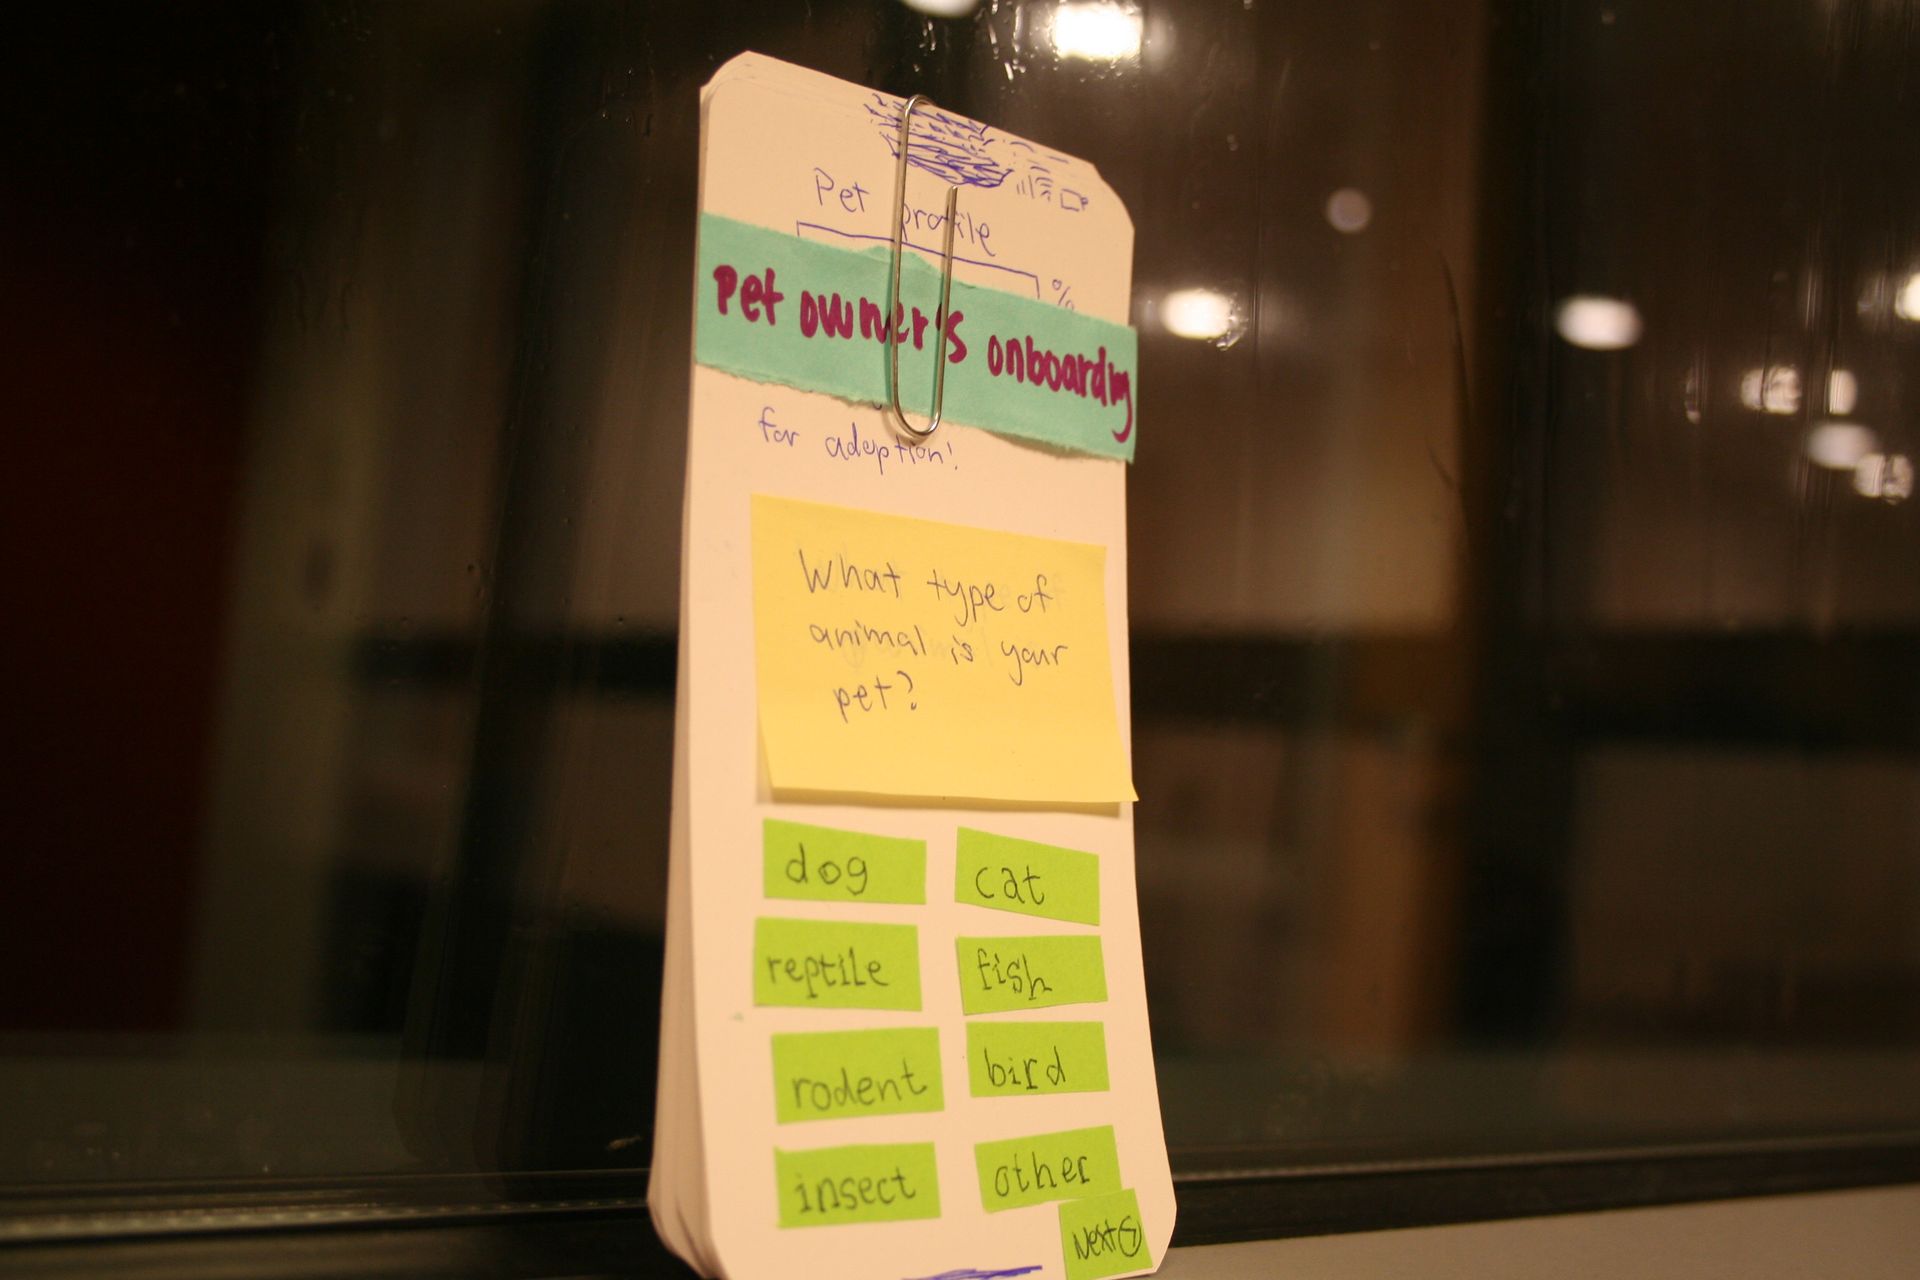 Pet profile
%
Pet owner's onboarding
for adoption!
What type of
animal is your
pet?
dog
cat
reptile
fish
rodent
bird
insect
other
Next